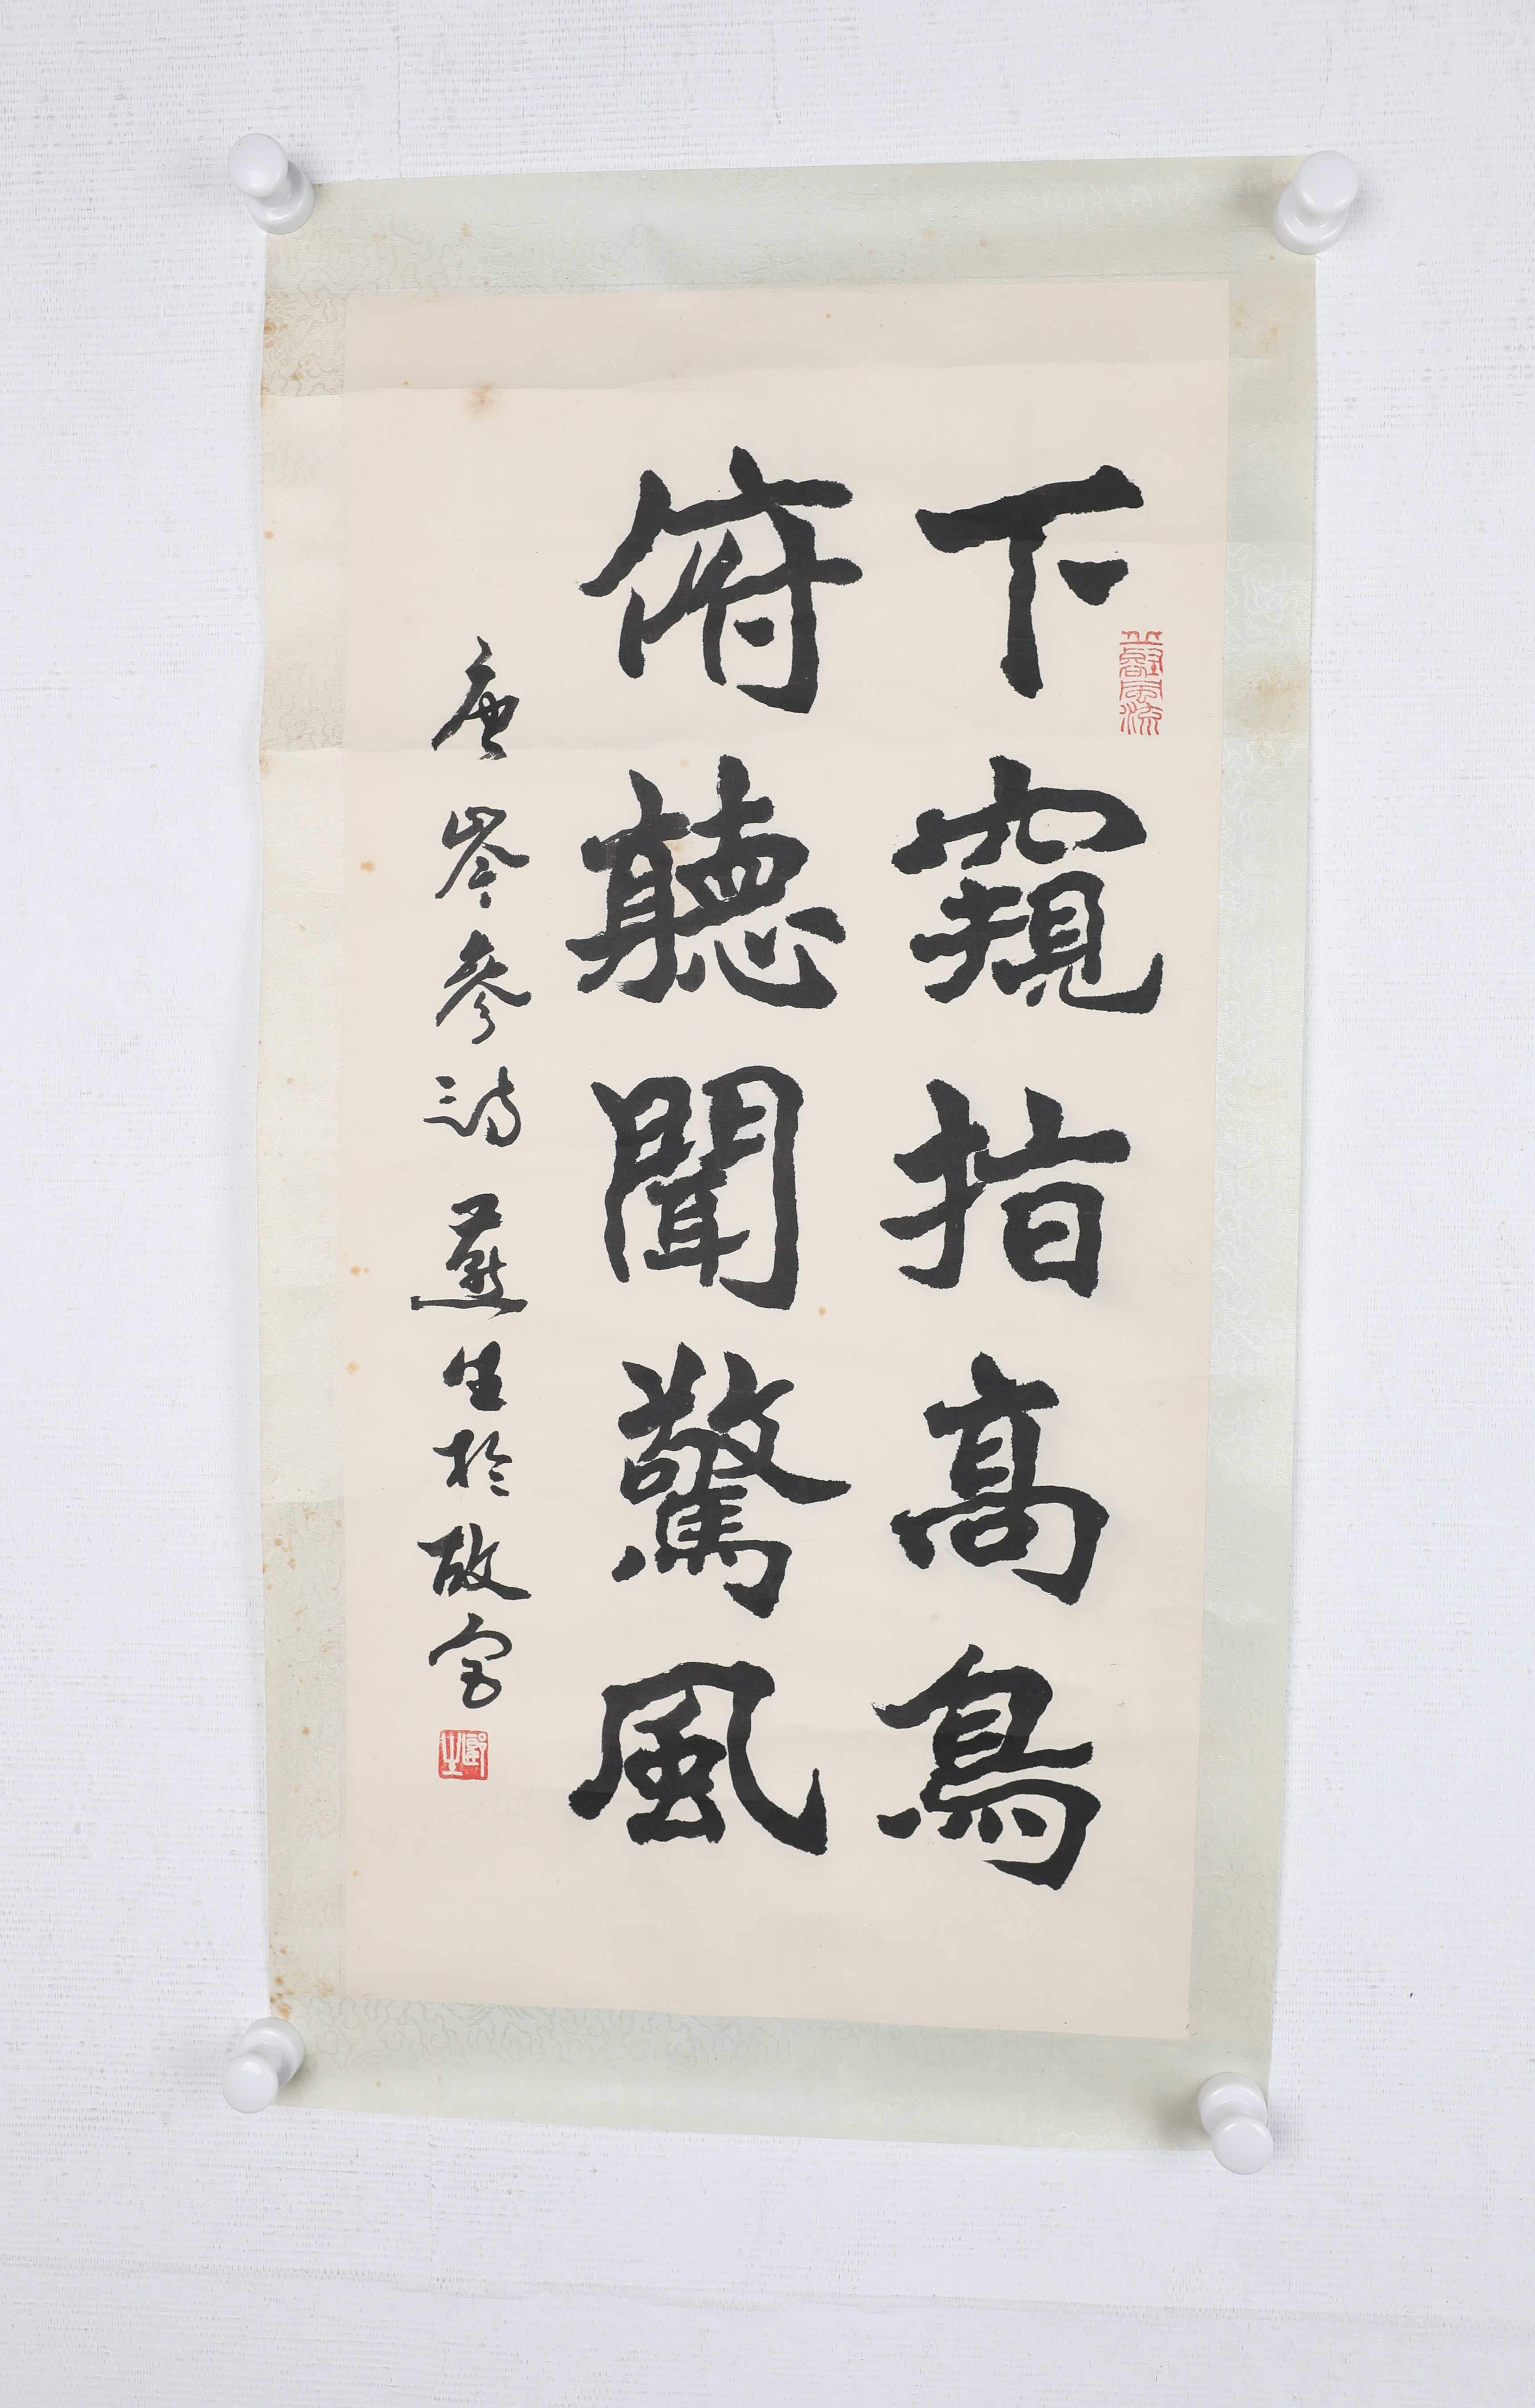 下窺指高鳥
俯聽聞驚風
唐岑參詩 燕生於故宮